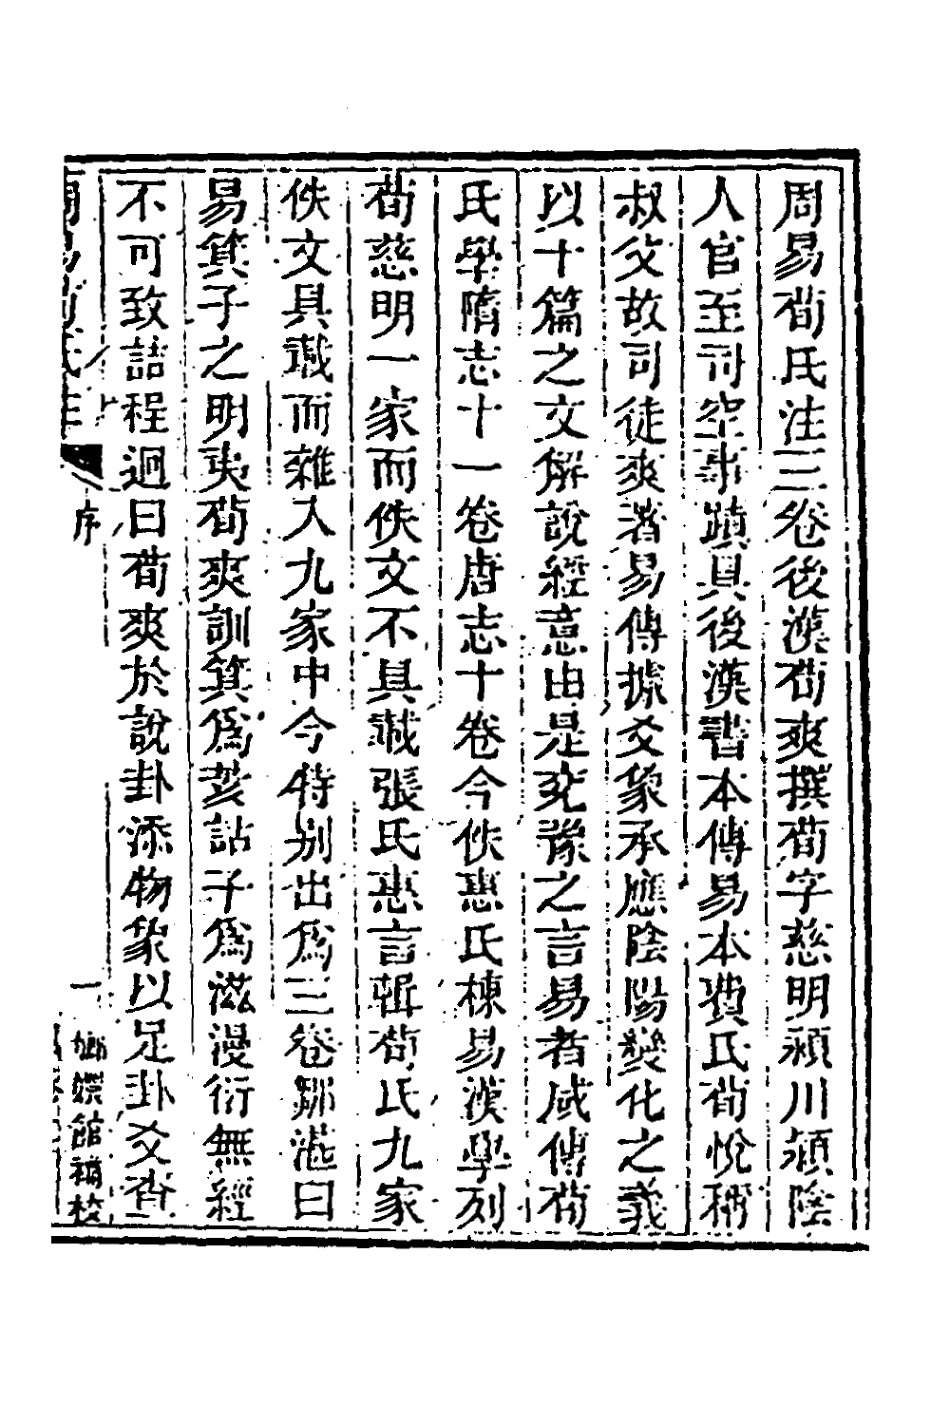 周易荀氏注三卷後漢荀爽撰荀字慈明潁川潁陰
人官至司空事蹟具後漢書本傳易本費氏荀悅稱
叔父故司徒爽著易傳據爻象承應陰陽變化之義
以十篇之文解說經意由是兖豫之言易者咸傳荀
氏學隋志十一卷唐志十卷今佚惠氏棟易漢學列
荀慈明一家而佚文不具載張氏惠言輯荀氏九家
佚文具載而雜入九家中今特別出爲三卷鄒湛曰
易箕子之明夷荀爽訓箕爲荄詁子爲滋漫衍無經
不可致詰程迥曰荀爽於說卦添物象以足卦爻查
周易荀氏注
序
一
嫏嬛館補校